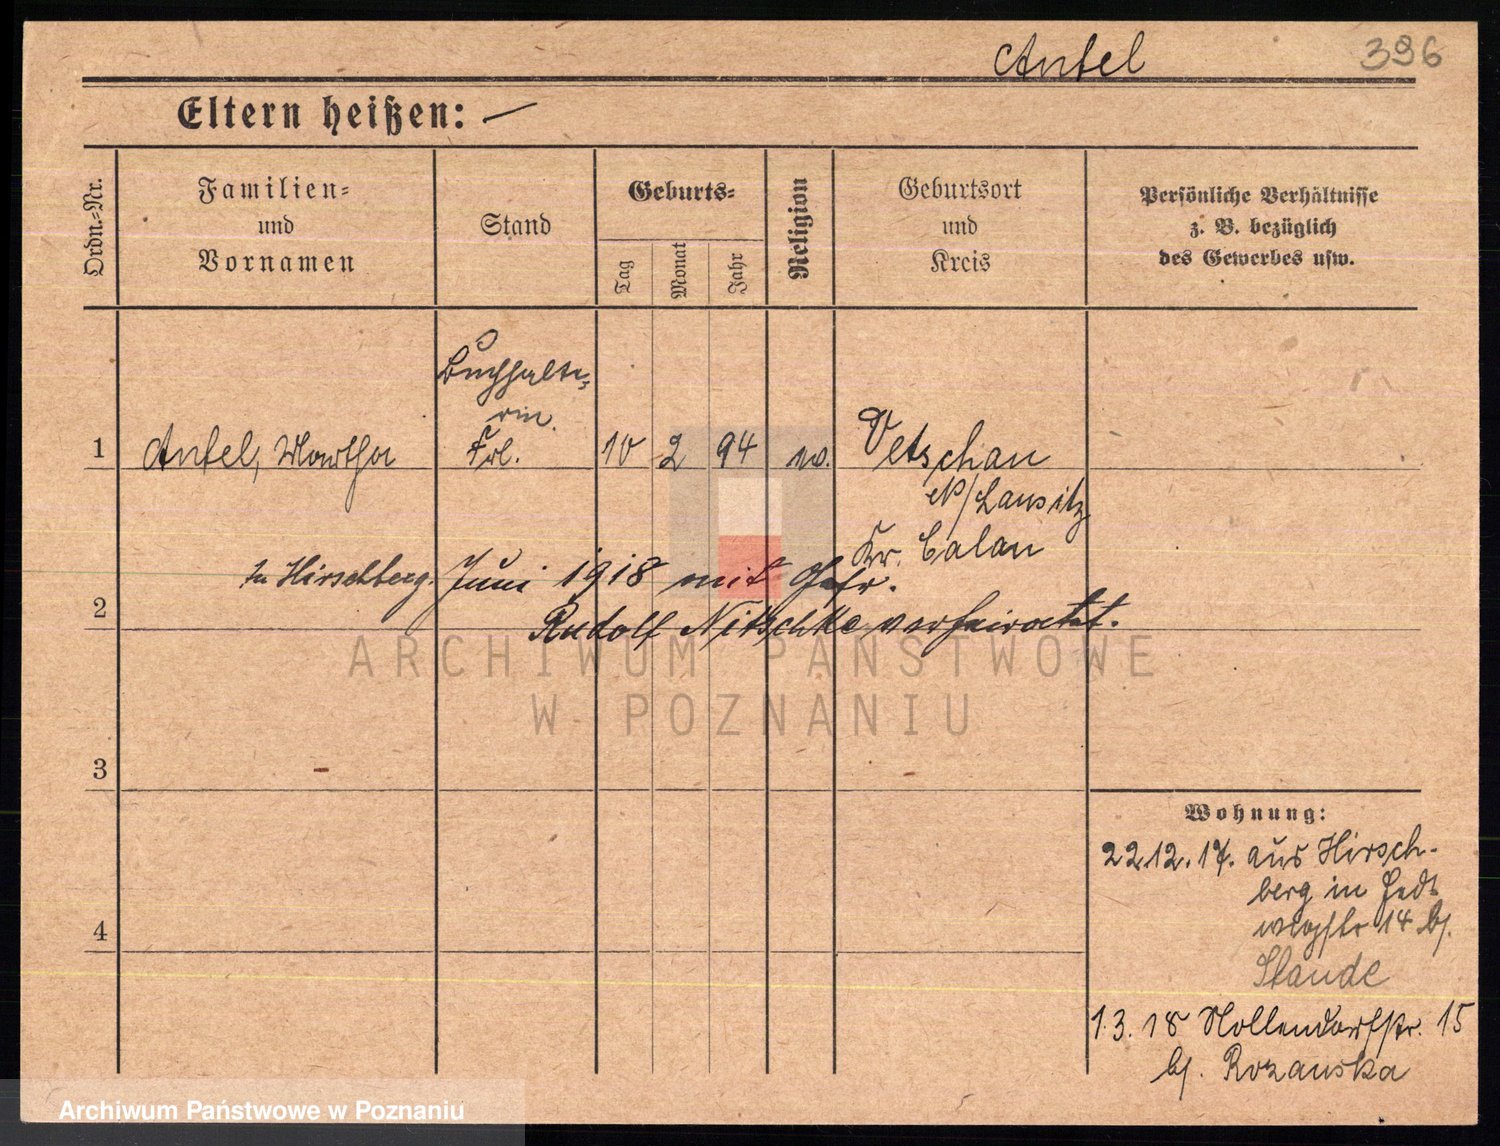 Antel
396
Eltern heißen: —
Ordn.=Nr.
Familien=
und
Vornamen
Stand
Geburts=
Tag
Monat
Jahr
Religion
Geburtsort
und
Kreis
Persönliche Verhältnisse
z. B. bezüglich
des Gewerbes usw.
Buchhalte-
rin.
1 Antel, Martha Frl. 10 2 94 Vetschau
N/Lausitz
Kr. Calau
In Hirschberg. Juni 1918 mit Gefr.
2
Rudolf Nitschke verheiratet.
3
4
Wohnung:
22.12.17. aus Hirsch-
berg in Hed-
wigstr 14 bj.
Staude
1.3.18 Nollendorfstr. 15
bj. Rozanska
ARCHIWUM PAŃSTWOWE
W POZNANIU
Archiwum Państwowe w Poznaniu